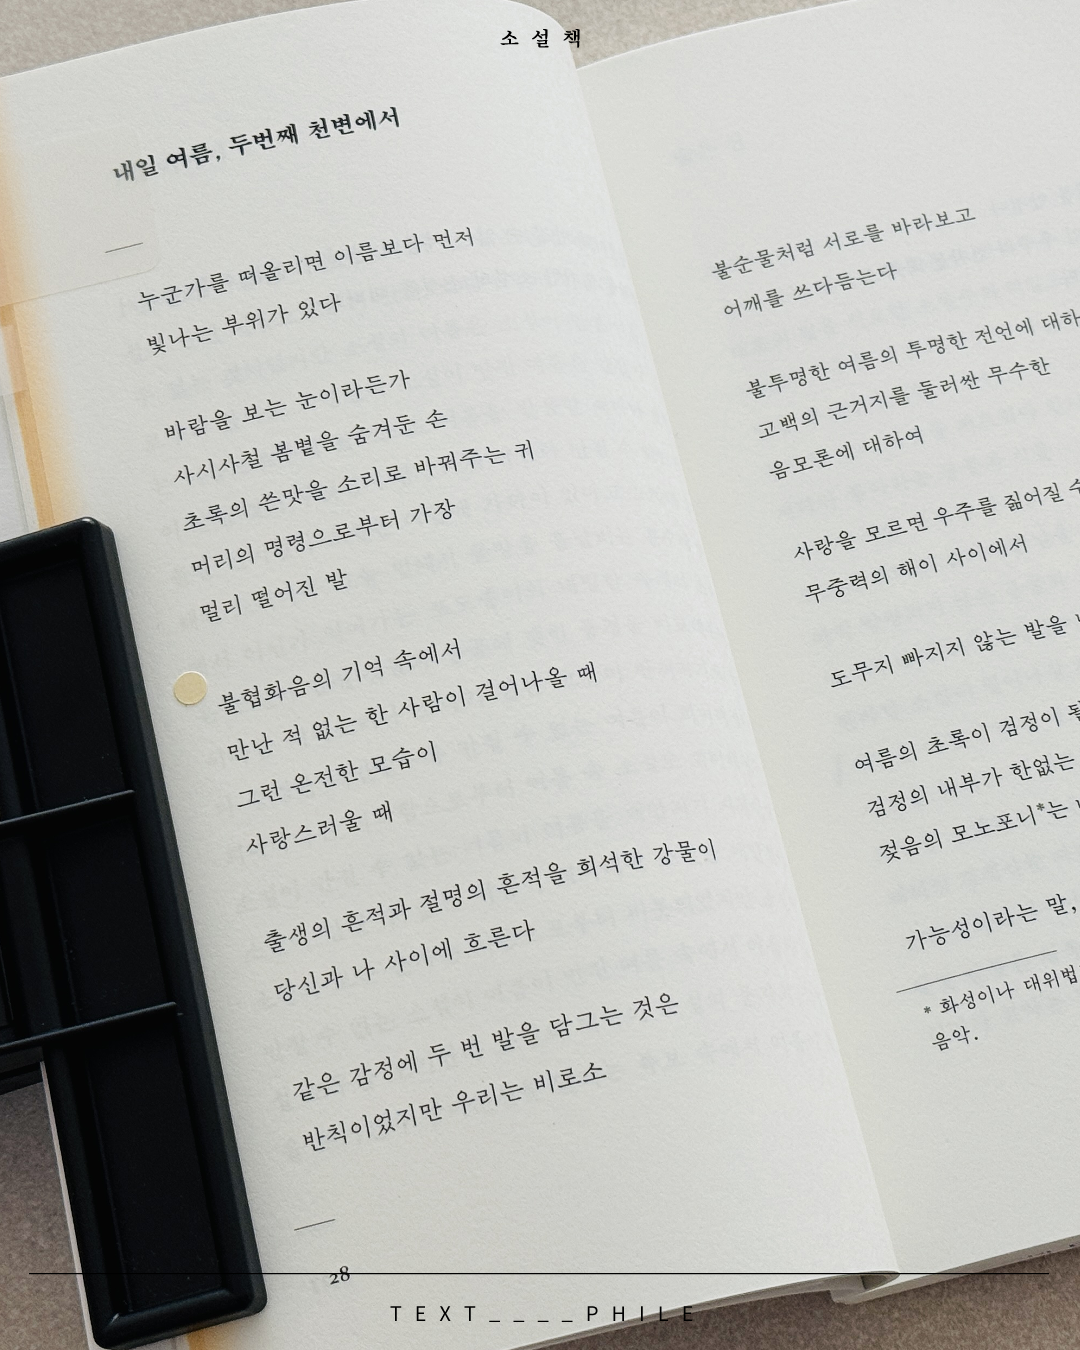 소설책
내일 여름, 두번째 천변에서
누군가를 떠올리면 이름보다 먼저
빛나는 부위가 있다
바람을 보는 눈이라든가
사시사철 봄볕을 숨겨둔 손
초록의 쓴맛을 소리로 바꿔주는 귀
머리의 명령으로부터 가장
멀리 떨어진 발
불협화음의 기억 속에서
만난 적 없는 한 사람이 걸어나올 때
그런 온전한 모습이
사랑스러울 때
출생의 흔적과 절명의 흔적을 희석한 강물이
당신과 나 사이에 흐른다
같은 감정에 두 번 발을 담그는 것은
반칙이었지만 우리는 비로소
28
불순물처럼 서로를 바라보고
어깨를 쓰다듬는다
불투명한 여름의 투명한 전언에 대하
고백의 근거지를 둘러싼 무수한
음모론에 대하여
사랑을 모르면 우주를 짊어질 수
무중력의 해이 사이에서
도무지 빠지지 않는 발을
여름의 초록이 검정이 될
검정의 내부가 한없는
젖음의 모노포니*는
가능성이라는 말,
* 화성이나 대위법
음악.
TEXT____PHILE